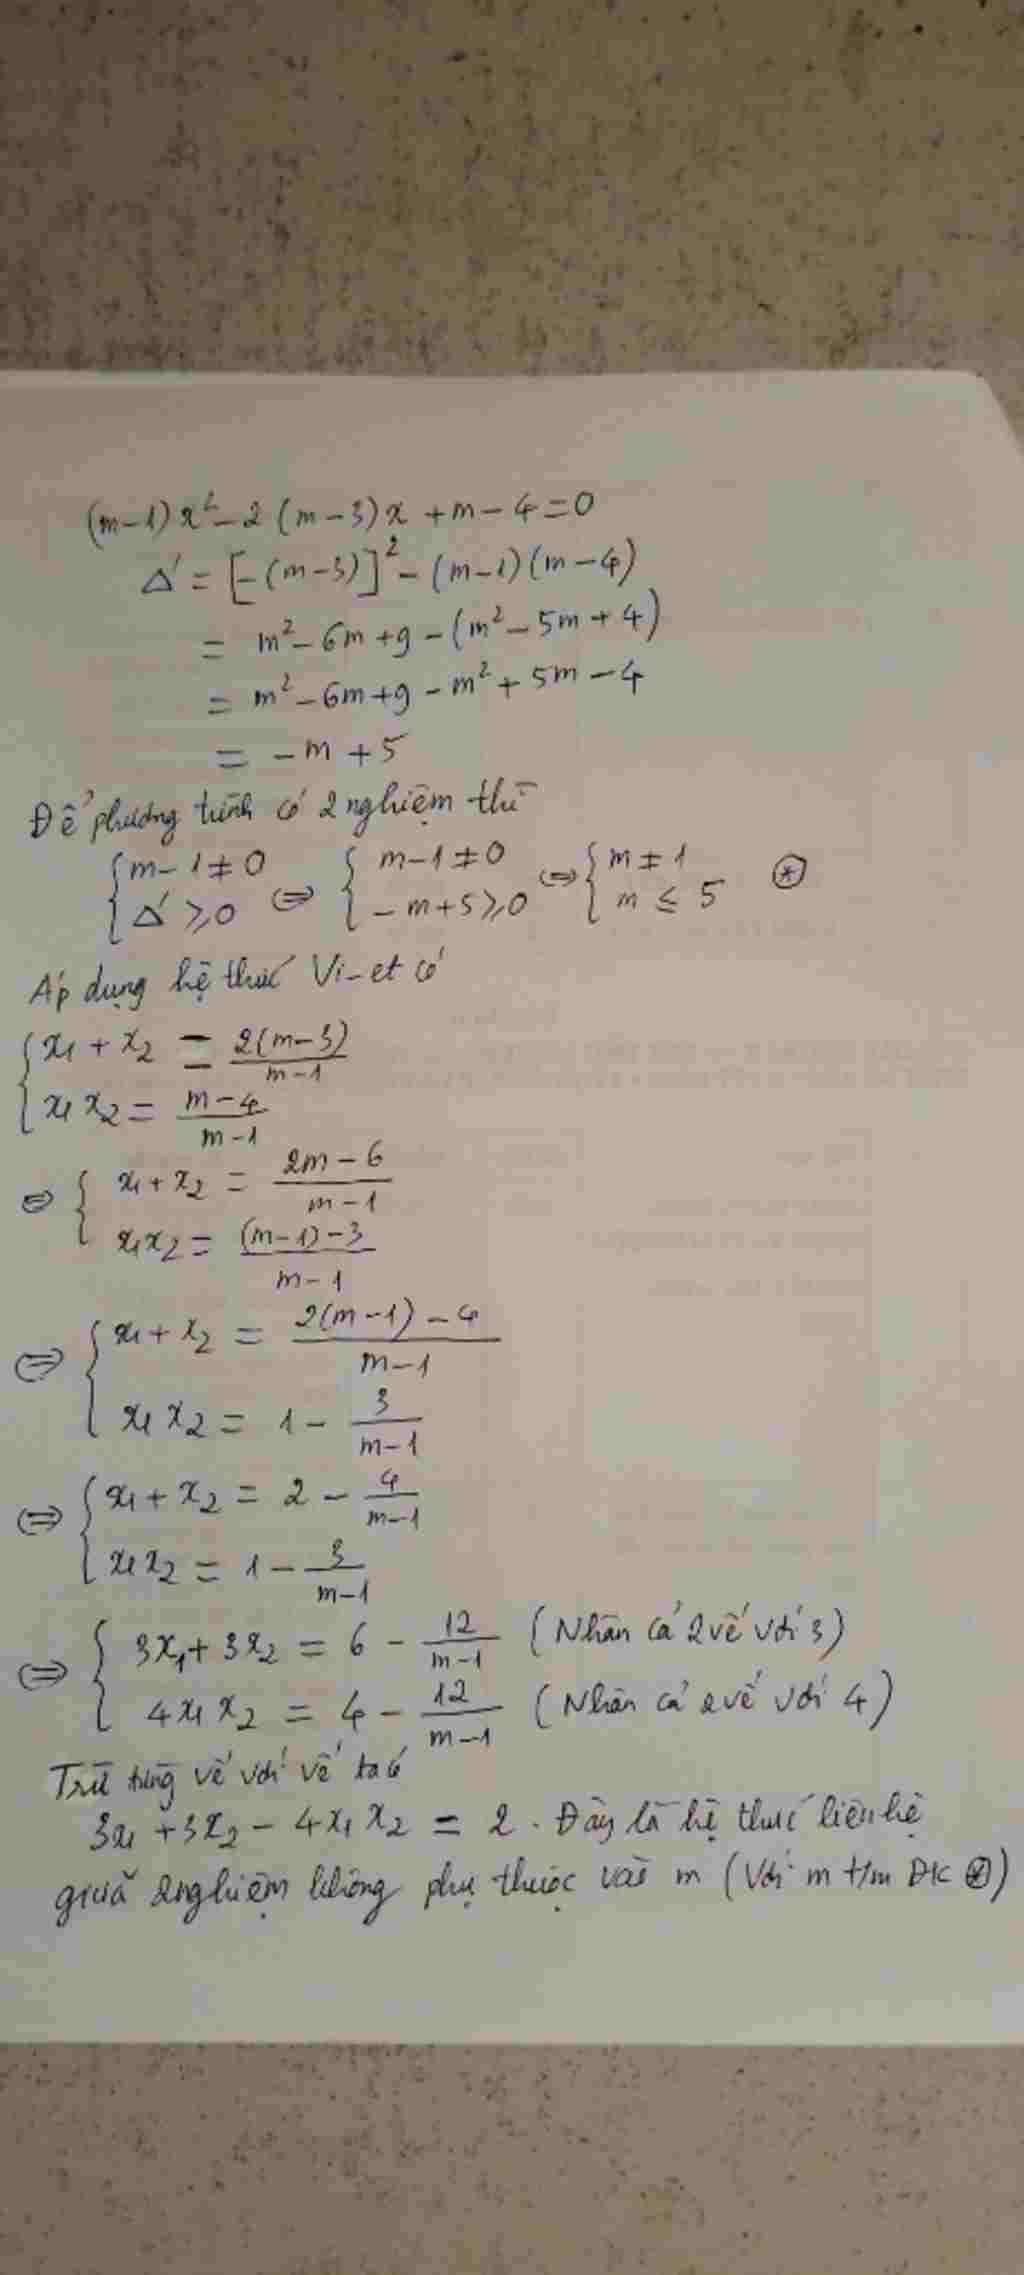 (m-1)x² - 2(m-3)x + m - 4 = 0
Δ' = [-(m-3)]² - (m-1)(m-4)
= m² - 6m + 9 - (m² - 5m + 4)
= m² - 6m + 9 - m² + 5m - 4
= -m + 5
Để phương trình có 2 nghiệm thì
{ m-1 ≠ 0 ; Δ' ≥ 0 ⇔ { m-1 ≠ 0 ; -m+5 ≥ 0 ⇔ { m ≠ 1 ; m ≤ 5 ⊛
Áp dụng hệ thức Vi-et có
{ x₁ + x₂ = 2(m-3)/(m-1)
x₁x₂ = (m-4)/(m-1)
⇔ { x₁ + x₂ = (2m-6)/(m-1)
x₁x₂ = ((m-1)-3)/(m-1)
⇔ { x₁ + x₂ = (2(m-1)-4)/(m-1)
x₁x₂ = 1 - 3/(m-1)
⇔ { x₁ + x₂ = 2 - 4/(m-1)
x₁x₂ = 1 - 3/(m-1)
⇔ { 3x₁ + 3x₂ = 6 - 12/(m-1) (Nhân cả 2 vế với 3)
4x₁x₂ = 4 - 12/(m-1) (Nhân cả 2 vế với 4)
Trừ từng vế với vế ta có
3x₁ + 3x₂ - 4x₁x₂ = 2. Đây là hệ thức liên hệ
giữa 2 nghiệm không phụ thuộc vào m (Với m t/m ĐK ⊛)